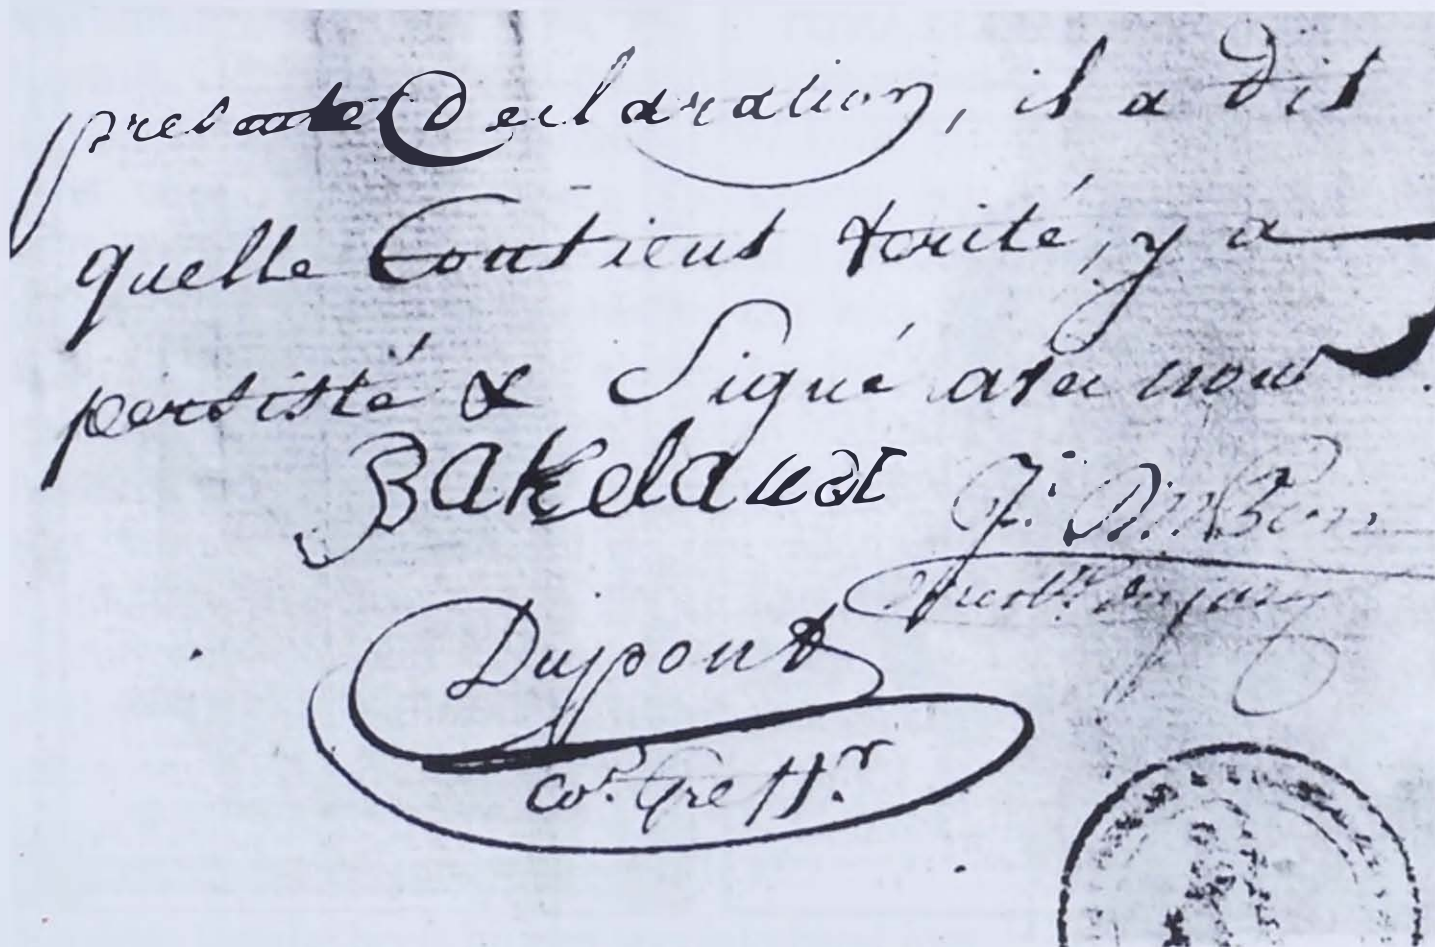 presente Declaration, il a dit
quelle Contient verité, y a
persisté & Signé avec nous
BAKelandt
Dupont
co.s Greff.r